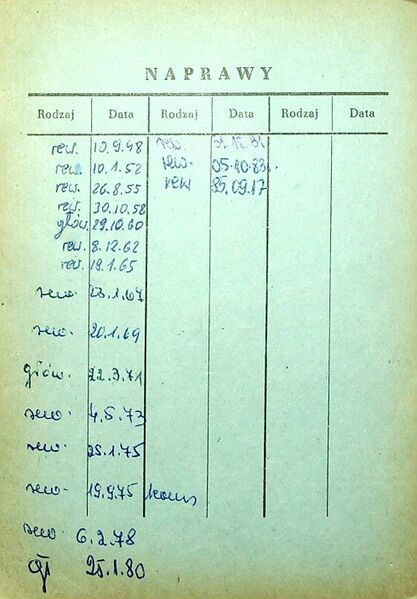 NAPRAWY
Rodzaj Data Rodzaj Data Rodzaj Data
rew. 10.9.48 rew.
rew. 10.1.52 rew. 05.10.83r.
rew. 26.8.55 rew 25.09.17
rew. 30.10.58
głów. 29.10.60
rew. 8.12.62
rew. 19.1.65
rew. 23.1.67
rew. 20.1.69
głów. 22.3.71
rew. 4.5.73
rew. 25.1.75
rew. 19.9.75
rew. 6.2.78
gł 25.1.80